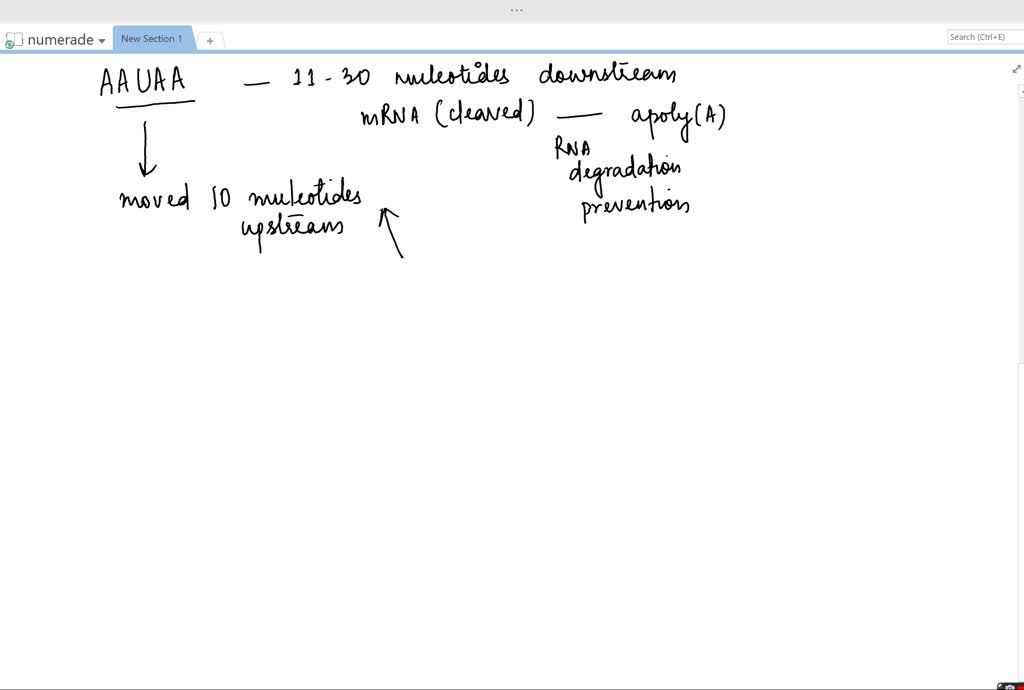 ...
numerade
New Section 1
+
Search (Ctrl+E)
AAUAA — 11-30 nuleotides downstream
mRNA (cleaved) — apoly(A)
RNA
degradation
prevention
moved 10 nuleotides
upstream